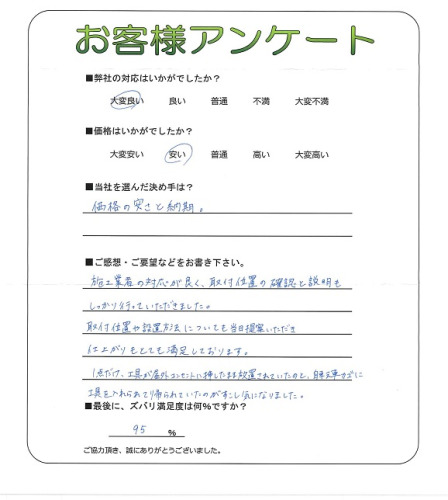 お客様アンケート
■弊社の対応はいかがでしたか？
大変良い 良い 普通 不満 大変不満
■価格はいかがでしたか？
大変安い 安い 普通 高い 大変高い
■当社を選んだ決め手は？
価格の安さと納期。
■ご感想・ご要望などをお書き下さい。
施工業者の対応が良く、取付位置の確認と説明も
しっかり行っていただきました。
取付位置や設置方法についても当日提案いただき
仕上がりもとても満足しております。
1点だけ、工具が屋外コンセントに挿したまま放置されていたのと、
工具を入れられて帰られていたのが少し気になりました。
■最後に、ズバリ満足度は何%ですか？
95 %
ご協力頂き、誠にありがとうございました。